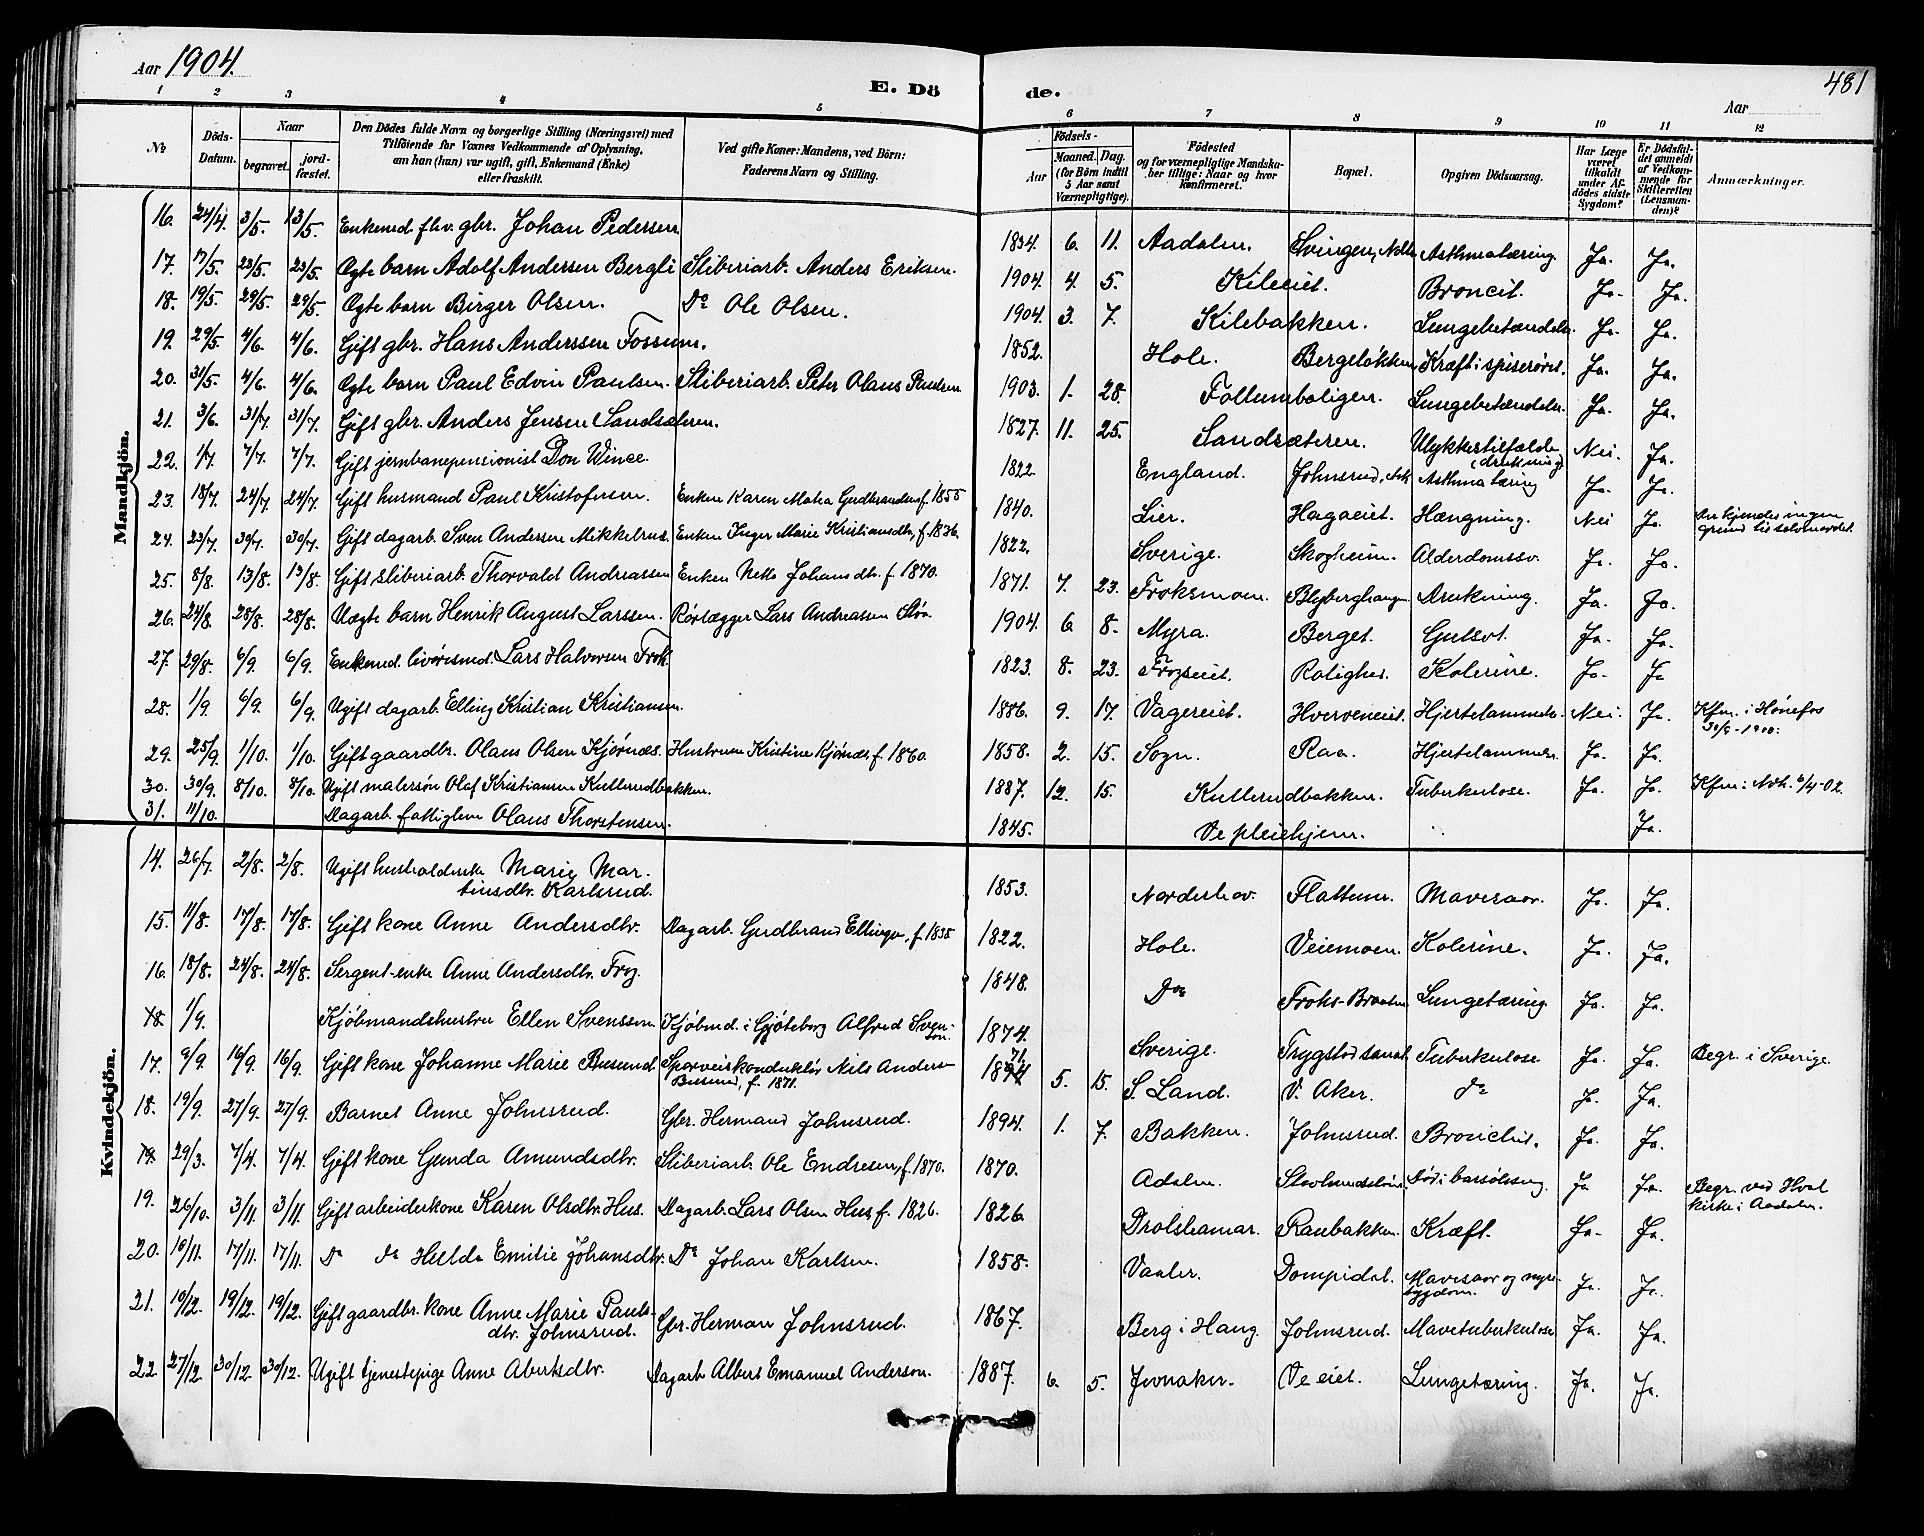 Aar 1904.
E. Döde.
481
Aar
1 2 3 4 5 6 7 8 9 10 11 12
No
Döds-Datum.
Naar begravet. jord-fæstet.
Den Dödes fulde Navn og borgerlige Stilling (Næringsvei) med Tilföiende for Voxnes Vedkommende af Oplysning, om han (hun) var ugift, gift, Enkemand (Enke) eller fraskilt.
Ved gifte Koner: Mandens, ved Börn: Faderens Navn og Stilling.
Födsels- Aar Maaned. Dag. (for Börn indtil 5 Aar samt Værnepligtige).
Födested og for værnepligtige Mandskaber tillige: Naar og hvor konfirmeret.
Bopæl.
Opgiven Dödsaarsag.
Har Læge været tilkaldt under Afdödes sidste Sygdom?
Er Dödsfaldet anmeldt af Vedkommende for Skifteretten (Lensmanden)?
Anmærkninger.
Mandkjön.
16. 24/4. 3/5. 13/5. Enkemd. fhv. gbr. Johan Pedersen 1834. 6. 11. Aadalen. Svingen, Asthmatæring Ja. Ja.
17. 17/5. 23/5. 23/5. Ægte barn Adolf Andersen Bergli Sliberiarb. Anders Eriksen. 1904. 4. 5. Kileeiet. Broncit. Ja. Ja.
18. 19/5. 29/5. 29/5. Ægte barn Birger Olsen. Do Ole Olsen. 1904. 3. 7. Kilebakken. Lungebetændelse. Ja. Ja.
19. 29/5. 4/6. 4/6. Gift gbr. Hans Anderssen Fossum. 1852. Hole. Bergeløkken Kræft i spiserøret. Ja. Ja.
20. 31/5. 4/6. 4/6. Ægte barn Paul Edvin Paulsen. Sliberiarb. Peter Olaus Paulsen 1903. 1. 28. Follumboligen. Lungebetændelse. Ja. Ja.
21. 3/6. 31/7. 31/7. Gift gbr. Anders Jensen Sandsæteren. 1827. 11. 25. Sandsæteren. Ulykkestilfælde (drukning) Nei. Ja.
22. 1/7. 7/7. 7/7. Gift jernbanepensionist Don Wince. 1822. England. Johnsrud, Ask Asthma tæring Ja. Ja.
23. 18/7. 24/7. 24/7. Gift husmand Paul Kristofersen. Enken Karen Maria Gudbrandsen f. 1855 1840. Lier. Hagaeiet. Hængning. Nei Ja. Der kjendes ingen grund til selvmordet.
24. 23/7. 30/7. 30/7. Gift dagarb. Sven Andersen Mikkelrus. Enken Inger Marie Kristiansdtr, f. 1836. 1822. Sverige. Skogheim. Alderdomssv. Ja. Ja.
25. 8/8. 13/8. 13/8. Gift sliberiarb. Thorvald Andreassen Enken Netto Johansdtr. f. 1870. 1871. 7. 23. Froksmoen. Blyberghaugen Drukning. Ja. Ja.
26. 24/8. 28/8. 28/8. Uægte barn Henrik August Larssen. Rørlægger Lars Andreasen Støa 1904. 6. 8. Myra. Berget. Gulsot. Ja. Ja.
27. 29/8. 6/9. 6/9. Enkemd. livörsmd. Lars Halvorsen Frok. 1823. 8. 23. Frogseiet. Rolighed. Kolerine. Ja. Ja
28. 1/9. 6/9. 6/9. Ugift dagarb. Elling Kristian Kristiansen. 1886. 9. 17. Vagereiet. Hverveneiet. Hjertelammelse. Nei. Ja. Kfm. i Hønefos 30/9-1900.
29. 25/9. 1/10. 1/10. Gift gaardbr. Olaus Olsen Kjørnæs. Hustruen Kristine Kjørnæs f. 1860. 1858. 2. 15. Sogn. Raa. Hjertelammelse. Ja. Ja.
30. 30/9. 8/10. 8/10. Ugift malersøn Olaf Kristiansen Kullerudbakken. 1887. 12. 15. Kullerudbakken. Tuberkulose. Ja. Ja. Kfm: Ndh. 6/4-02.
31. 11/10. Dagarb. fattiglem Olaus Thorstensen. 1845. Ve pleiehjem. Ja.
Kvindekjön.
14. 26/7. 2/8. 2/8. Ugift husholderske Marie Martinsdtr. Karlsrud. 1853. Norderhov. Flattum. Mavesaar. Ja. Ja.
15. 11/8. 17/8. 17/8. Gift kone Anne Andersdtr. Dagarb. Gudbrand Ellingsen, f. 1838 1822. Hole. Veiemoen. Kolerine. Ja. Ja.
16. 18/8. 24/8. 24/8. Sergent-enke Anne Andersdtr. Frog. 1848. Do Froks-Braaten Lungetæring Ja. Ja.
18. 1/9. Kjøbmandshustru Ellen Svensson. Kjøbmd. i Gjøteborg Alfred Svenson. 1874. Sverige. Trygstad sanat. Tuberkulose Ja. Ja. Begr. i Sverige.
17. 9/9. 16/9. 16/9. Gift kone Johanne Marie Busund Sporveiskonduktør Nils Anderse Busund, f. 1871. 1874 71. 5. 15. S. Land. V. Aker. do Ja. Ja.
18. 19/9. 27/9. 27/9. Barnet Anne Johnsrud. Gbr. Hermand Johnsrud. 1894. 1. 7. Bakken. Johnsrud. Bronchit. Ja. Ja.
19. 29/3. 7/4. 7/4. Gift kone Gunda Amundsdtr. Sliberiarb. Ole Endresen, f. 1870. 1870. Adalen. Død i barselseng. Ja Ja. Begr. ved Hval kirke i Aadalen.
19. 26/10. 3/11. 3/11. Gift arbeiderkone Karen Olsdtr. Hus. Dagarb. Lars Olsen Hus f. 1826. 1826. Drolshamar. Raubakken. Kræft. Ja. Ja.
20. 10/11. 17/11. 17/11. Do do Hulda Emilie Johansdtr. Do Johan Karlsen. 1858. Vaaler. Dompidal. Mavesaar og nyresygdom. Ja. Ja.
21. 10/12. 19/12. 19/12. Gift gaardbr. kone Anne Marie Paulsdtr. Johnsrud. Gbr. Herman Johnsrud. 1867. Berg i Haug. Johnsrud. Mavetuberkulose Ja. Ja.
22. 27/12. 30/12. 30/12. Ugift tjenestepige Anne Albertsdtr. Dagarb Albert Emanuel Anderson. 1887. 6. 5. Jevnaker. Ve eiet. Lungetæring. Ja. Ja.